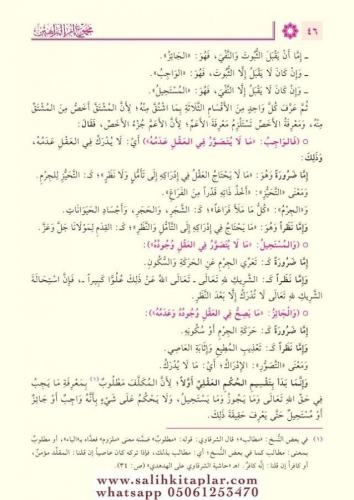 ٤٦
ـ إِمَّا أَنْ يَقْبَلَ الثُّبُوتَ وَالنَّفْيَ، فَهُوَ: «الْجَائِزُ».
ـ وَإِنْ كَانَ لَا يَقْبَلُ إِلَّا الثُّبُوتَ، فَهُوَ: «الْوَاجِبُ».
ـ وَإِنْ كَانَ لَا يَقْبَلُ إِلَّا النَّفْيَ، فَهُوَ: «الْمُسْتَحِيلُ».
ثُمَّ عَرَّفَ كُلَّ وَاحِدٍ مِنَ الْأَقْسَامِ الثَّلَاثَةِ بِمَا اشْتُقَّ مِنْهُ؛ لِأَنَّ الْمُشْتَقَّ أَخَصُّ مِنَ الْمُشْتَقِّ
مِنْهُ، وَمَعْرِفَةُ الْأَخَصِّ تَسْتَلْزِمُ مَعْرِفَةَ الْأَعَمِّ؛ لِأَنَّ الْأَعَمَّ جُزْءُ الْأَخَصِّ، فَقَالَ:
(فَالْوَاجِبُ: «مَا لَا يُتَصَوَّرُ فِي الْعَقْلِ عَدَمُهُ») أَيْ: لَا يُدْرَكُ فِي الْعَقْلِ عَدَمُهُ،
وَذَلِكَ:
إِمَّا ضَرُورَةً وَهُوَ: «مَا لَا يَحْتَاجُ الْعَقْلُ فِي إِدْرَاكِهِ إِلَى تَأَمُّلٍ وَلَا نَظَرٍ»؛ كَـ: التَّحَيُّزِ لِلْجِرْمِ.
وَمَعْنَى «التَّحَيُّزِ»: «أَخْذُ ذَاتِهِ قَدْرًا مِنَ الْفَرَاغِ».
وَ«الْجِرْمُ»: «كُلُّ مَا مَلَأَ فَرَاغًا»؛ كَـ: الشَّجَرِ، وَالْحَجَرِ، وَأَجْسَادِ الْحَيَوَانَاتِ.
وَإِمَّا نَظَرًا وَهُوَ: «مَا يَحْتَاجُ فِي إِدْرَاكِهِ إِلَى التَّأَمُّلِ وَالنَّظَرِ»؛ كَـ: الْقِدَمِ لِمَوْلَانَا جَلَّ وَعَزَّ.
(وَالْمُسْتَحِيلُ: «مَا لَا يُتَصَوَّرُ فِي الْعَقْلِ وُجُودُهُ»):
إِمَّا ضَرُورَةً كَـ: تَعَرِّي الْجِرْمِ عَنِ الْحَرَكَةِ وَالسُّكُونِ.
وَإِمَّا نَظَرًا كَـ: الشَّرِيكِ لِلهِ تَعَالَى ـ تَعَالَى اللهُ عَنْ ذَلِكَ عُلُوًّا كَبِيرًا ـ، فَإِنَّ اسْتِحَالَةَ
الشَّرِيكِ لِلهِ تَعَالَى لَا تُدْرَكُ إِلَّا بَعْدَ النَّظَرِ.
(وَالْجَائِزُ: «مَا يَصِحُّ فِي الْعَقْلِ وُجُودُهُ وَعَدَمُهُ»):
إِمَّا ضَرُورَةً كَـ: حَرَكَةِ الْجِرْمِ أَوْ سُكُونِهِ.
وَإِمَّا نَظَرًا كَـ: تَعْذِيبِ الْمُطِيعِ وَإِثَابَةِ الْعَاصِي.
وَمَعْنَى «التَّصَوُّرِ»: الْإِدْرَاكُ؛ أَيْ: مَا يُدْرَكُ.
وَإِنَّمَا بَدَأَ بِتَقْسِيمِ الْحُكْمِ الْعَقْلِيِّ أَوَّلًا؛ لِأَنَّ الْمُكَلَّفَ مَطْلُوبٌ(١) بِمَعْرِفَةِ مَا يَجِبُ
فِي حَقِّ اللهِ تَعَالَى وَمَا يَجُوزُ وَمَا يَسْتَحِيلُ، وَلَا يَحْكُمُ عَلَى شَيْءٍ بِأَنَّهُ وَاجِبٌ أَوْ جَائِزٌ
أَوْ مُسْتَحِيلٌ حَتَّى يَعْرِفَ حَقِيقَةَ ذَلِكَ.
(١) في بعض النسخ: «مطالب»؛ قال الشرقاوي: قوله: «مطلوب» ضمنه معنى «ملزوم» فعداه بـ«الباء»، أو مطلوب
بمعنى: مطالب كما في بعض النسخ؛ أي: مطالب بذلك، فإذا تركه كان عاصيا إن قلنا: المقلد مؤمن،
أو كافرا إن قلنا: إنه كافر. اهـ «حاشية الشرقاوي على الهدهدي» (ص: ٣٤).
www.salihkitaplar.com
whatsapp 05061253470